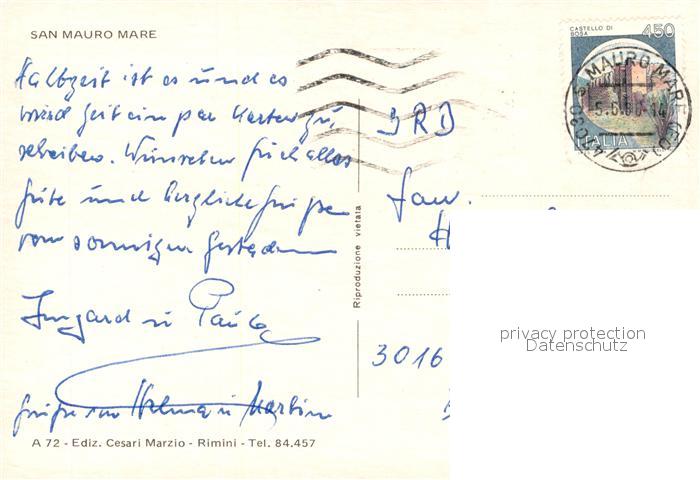 SAN MAURO MARE
Halbzeit ist es und es
wird Zeit ein par Karten zu
schreiben. Wünschen Euch alles
Gute und herzliche Grüße
vom sonnigen
Irmgard u Paula
Grüße an Helma u Martin
A 72 - Ediz. Cesari Marzio - Rimini - Tel. 84.457
Riproduzione vietata
CASTELLO DI
BOSA
450
ITALIA
S. MAURO MARE
47030
BRD
Fam.
H
3016
privacy protection
Datenschutz